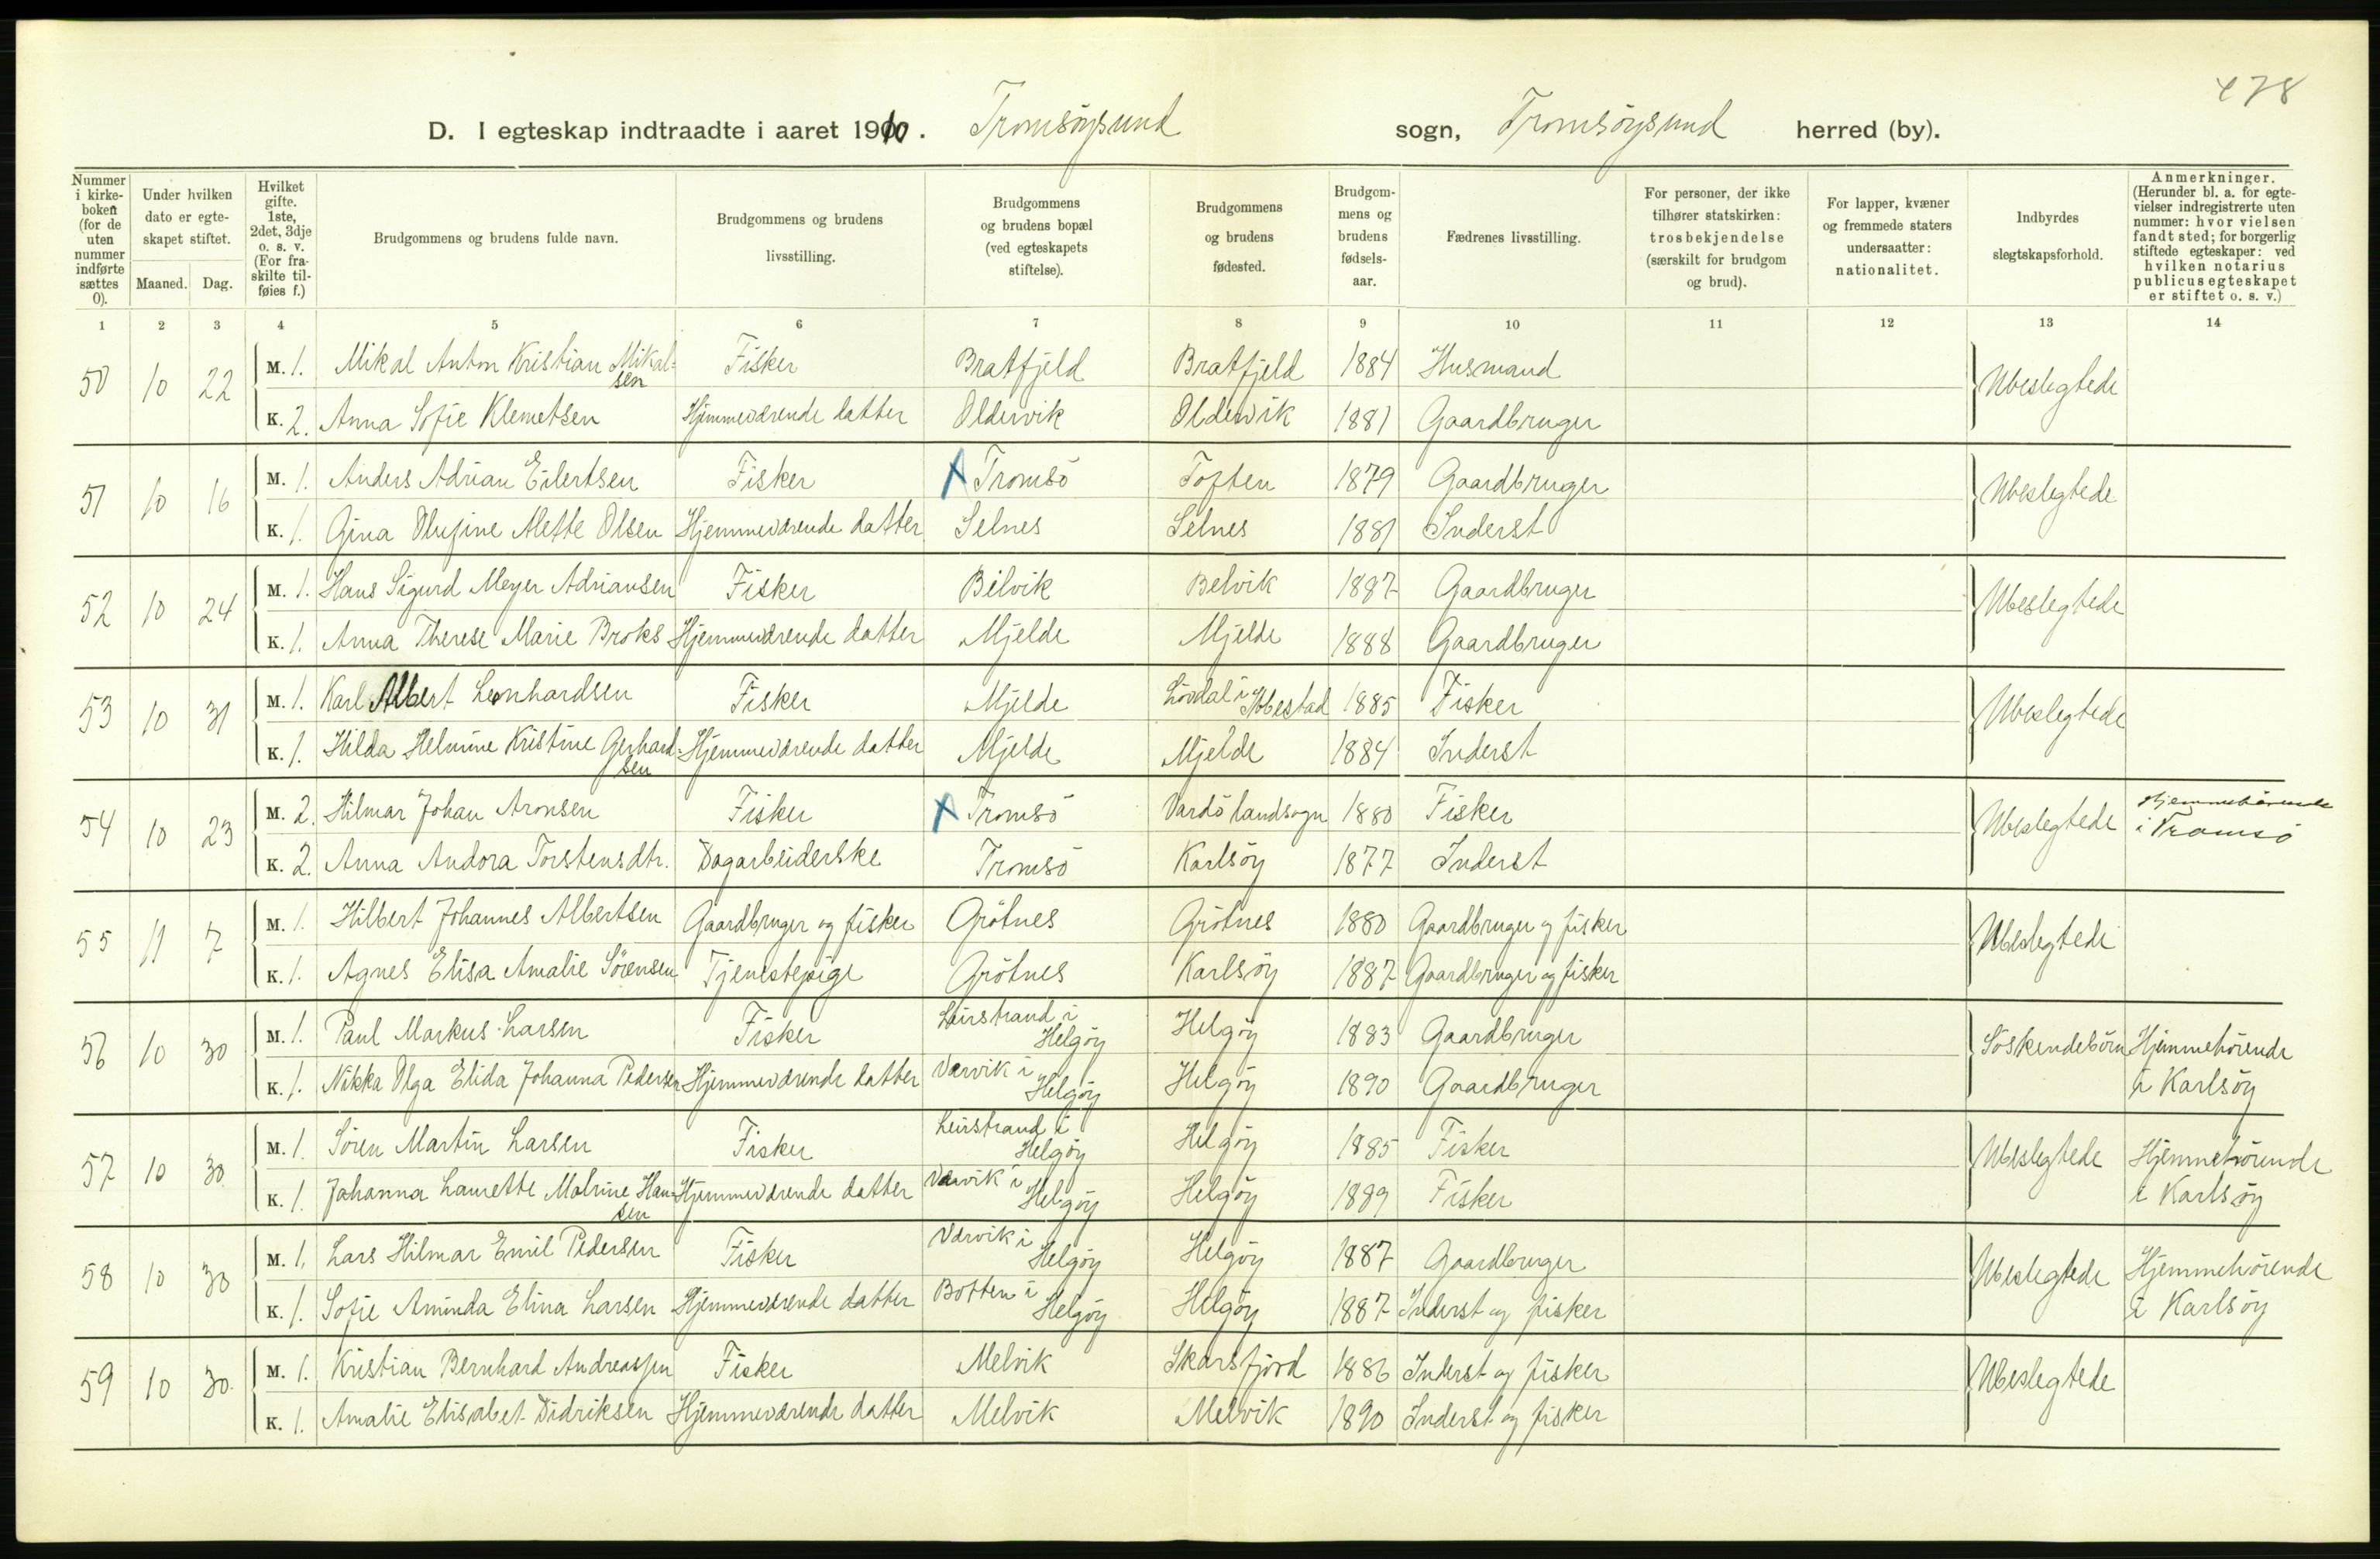 478
D. I egteskap indtraadte i aaret 1910. Tromsöysund sogn, Tromsöysund herred (by).
Nummer i kirke-boken (for de uten nummer indførte sættes 0). Under hvilken dato er egte-skapet stiftet. Maaned. Dag. Hvilket gifte. 1ste, 2det, 3dje o. s. v. (For fra-skilte til-føies f.) Brudgommens og brudens fulde navn. Brudgommens og brudens livsstilling. Brudgommens og brudens bopæl (ved egteskapets stiftelse). Brudgommens og brudens fødested. Brudgom-mens og brudens fødsels-aar. Fædrenes livsstilling. For personer, der ikke tilhører statskirken: trosbekjendelse (særskilt for brudgom og brud). For lapper, kvæner og fremmede staters undersaatter: nationalitet. Indbyrdes slegtskapsforhold. Anmerkninger. (Herunder bl. a. for egte-vielser indregistrerte uten nummer: hvor vielsen fandt sted; for borgerlig stiftede egteskaper: ved hvilken notarius publicus egteskapet er stiftet o. s. v.)
1 2 3 4 5 6 7 8 9 10 11 12 13 14
50 10 22 M. 1. Mikal Anton Kristian Mikal=sen Fisker Bratfjeld Bratfjeld 1884 Husmand Ubeslegtede
K. 2. Anna Sofie Klemetsen Hjemmeværende datter Oldervik Oldervik 1881 Gaardbruger
51 10 16 M. 1. Anders Adrian Eilertsen Fisker X Tromsö Toften 1879 Gaardbruger Ubeslegtede
K. 1. Gina Olufine Alette Olsen Hjemmeværende datter Selnes Selnes 1881 Inderst
52 10 24 M. 1. Hans Sigurd Meyer Adriansen Fisker Bélvik Belvik 1887 Gaardbruger Ubeslegtede
K. 1. Anna Therese Marie Broks Hjemmeværende datter Mjelde Mjelde 1888 Gaardbruger
53 10 31 M. 1. Karl Albert Leonhardsen Fisker Mjelde Lövdal i Ibbestad 1885 Fisker Ubeslegtede
K. 1. Hilda Helmine Kristine Gerhard-sen Hjemmeværende datter Mjelde Mjelde 1884 Inderst
54 10 23 M. 2. Hilmar Johan Aronsen Fisker X Tromsö Vardö landsogn 1880 Fisker Ubeslegtede Hjemmehörende i Tromsö
K. 2. Anna Andora Torstensdtr. Dagarbeiderske Tromsö Karlsöy 1877 Inderst
55 11 7 M. 1. Hilbert Johannes Albertsen Gaardbruger og fisker Grötnes Grötnes 1880 Gaardbruger og fisker Ubeslegtede
K. 1. Agnes Elisa Amalie Sörensen Tjenestepige Grötnes Karlsöy 1887 Gaardbruger og fisker
56 10 30 M. 1. Paul Markus Larsen Fisker Leirstrand i Helgöy Helgöy 1883 Gaardbruger Söskendebörn Hjemmehörende i Karlsöy
K. 1. Nikka Olga Elida Johanna Pedersen Hjemmeværende datter Varvik i Helgöy Helgöy 1890 Gaardbruger
57 10 30 M. 1. Sören Martin Larsen Fisker Leirstrand i Helgöy Helgöy 1885 Fisker Ubeslegtede Hjemmehörende i Karlsöy
K. 1. Johanna Laurette Malrine Han-sen Hjemmeværende datter Varvik i Helgöy Helgöy 1889 Fisker
58 10 30 M. 1. Lars Hilmar Emil Pedersen Fisker Varvik i Helgöy Helgöy 1887 Gaardbruger Ubeslegtede Hjemmehörende i Karlsöy
K. 1. Sofie Aminda Elina Larsen Hjemmeværende datter Botten i Helgöy Helgöy 1887 Inderst og fisker
59 10 30. M. 1. Kristian Bernhard Andreassen Fisker Melvik Skarsfjord 1886 Inderst og fisker Ubeslegtede
K. 1. Amalie Elisabet Didriksen Hjemmeværende datter Melvik Melvik 1890 Inderst og fisker